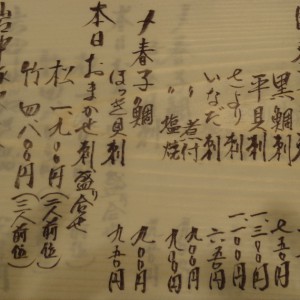 黒鯛刺 七五〇円
平貝刺 一三〇〇円
さより刺 一一〇〇円
いなだ刺 六五〇円
〃 煮付 九〇〇円
〃 塩焼 九〇〇円
〆春子鯛 九〇〇円
ほっき貝刺 九五〇円
本日おまかせ刺盛り合せ
松 一九〇〇円(二人前位)
竹 四八〇〇円(三人前位)